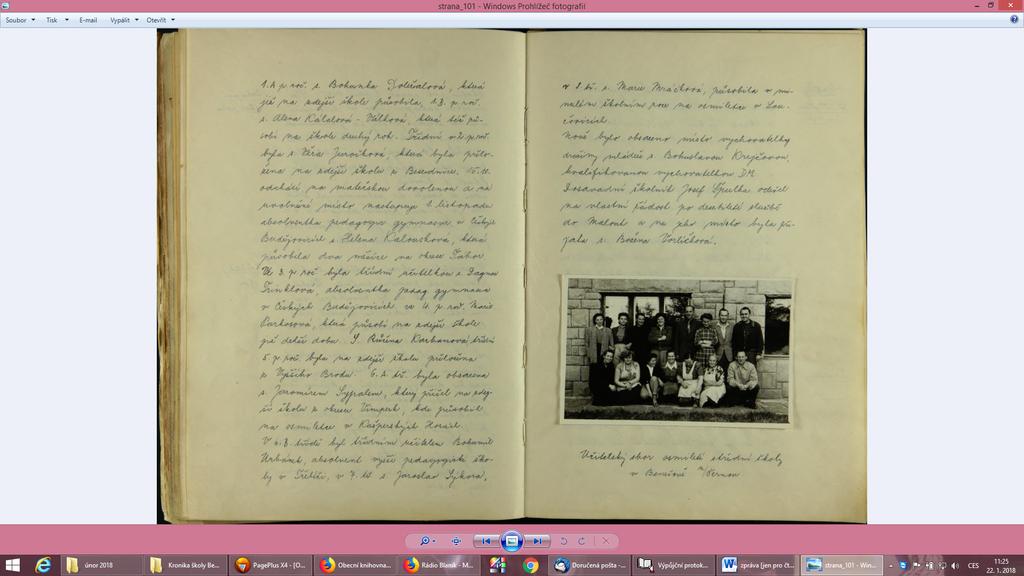 strana_101 - Windows Prohlížeč fotografií
Soubor Tisk E-mail Vypálit Otevřít
1. A p. roč. s. Bohunka Doležalová, která
již na zdejší škole působila, 1. B. p. roč.
s. Alena Kálalová - Válková, která též pů-
sobí na škole druhý rok. Třídní v 2. p. roč.
byla s. Věra Jurčíková, která byla přelo-
žena na zdejší školu z Besednice. 15. 10.
odchází na mateřskou dovolenou a na
uvolněné místo nastupuje 1. listopadu
absolventka pedagog. gymnasia v Českých
Budějovicích s. Helena Kalousková, která
působila dva měsíce na okrese Tábor.
Ve 3. p. roč. byla třídní učitelkou s. Dagmar
absolventka pedag. gymnasia
v Českých Budějovicích, ve 4. p. roč. Marie
která působí na zdejší škole
již delší dobu. S. Růžena Karbanová třídní
5. p. roč. byla na zdejší školu přeložena
z Vyššího Brodu. 6. A tř. byla obsazena
s. Jaromírem který přišel na zdej-
ší školu z okresu Vimperk, kde působil
na osmiletce v Kašperských Horách.
V 6. B. třídě byl třídním učitelem Bohumil
Urbánek, absolvent vyšší pedagogické ško-
ly v v 7. tř. s. Jaroslav Sýkora,
v 8. tř. s. Marie Mráčková, působila v mi-
nulém školním roce na osmiletce v Lou-
čovicích.
Nově bylo obsazeno místo vychovatelky
družiny mládeže s. Bohuslavou Krejčovou,
kvalifikovanou vychovatelkou DM.
Dosavadní školník Josef odešel
na vlastní žádost po desítileté službě
do Malont a na jeho místo byla při-
jata s. Božena Vorlíčková.
Učitelský sbor osmileté střední školy
v Benešově n/Černou
únor 2018
Kronika školy Be...
PagePlus X4 - [O...
Obecní knihovna...
Rádio Blaník - M...
Doručená pošta -...
Výpůjční protok...
zpráva [jen pro čt...
strana_101 - Win...
CES
11:25
22. 1. 2018